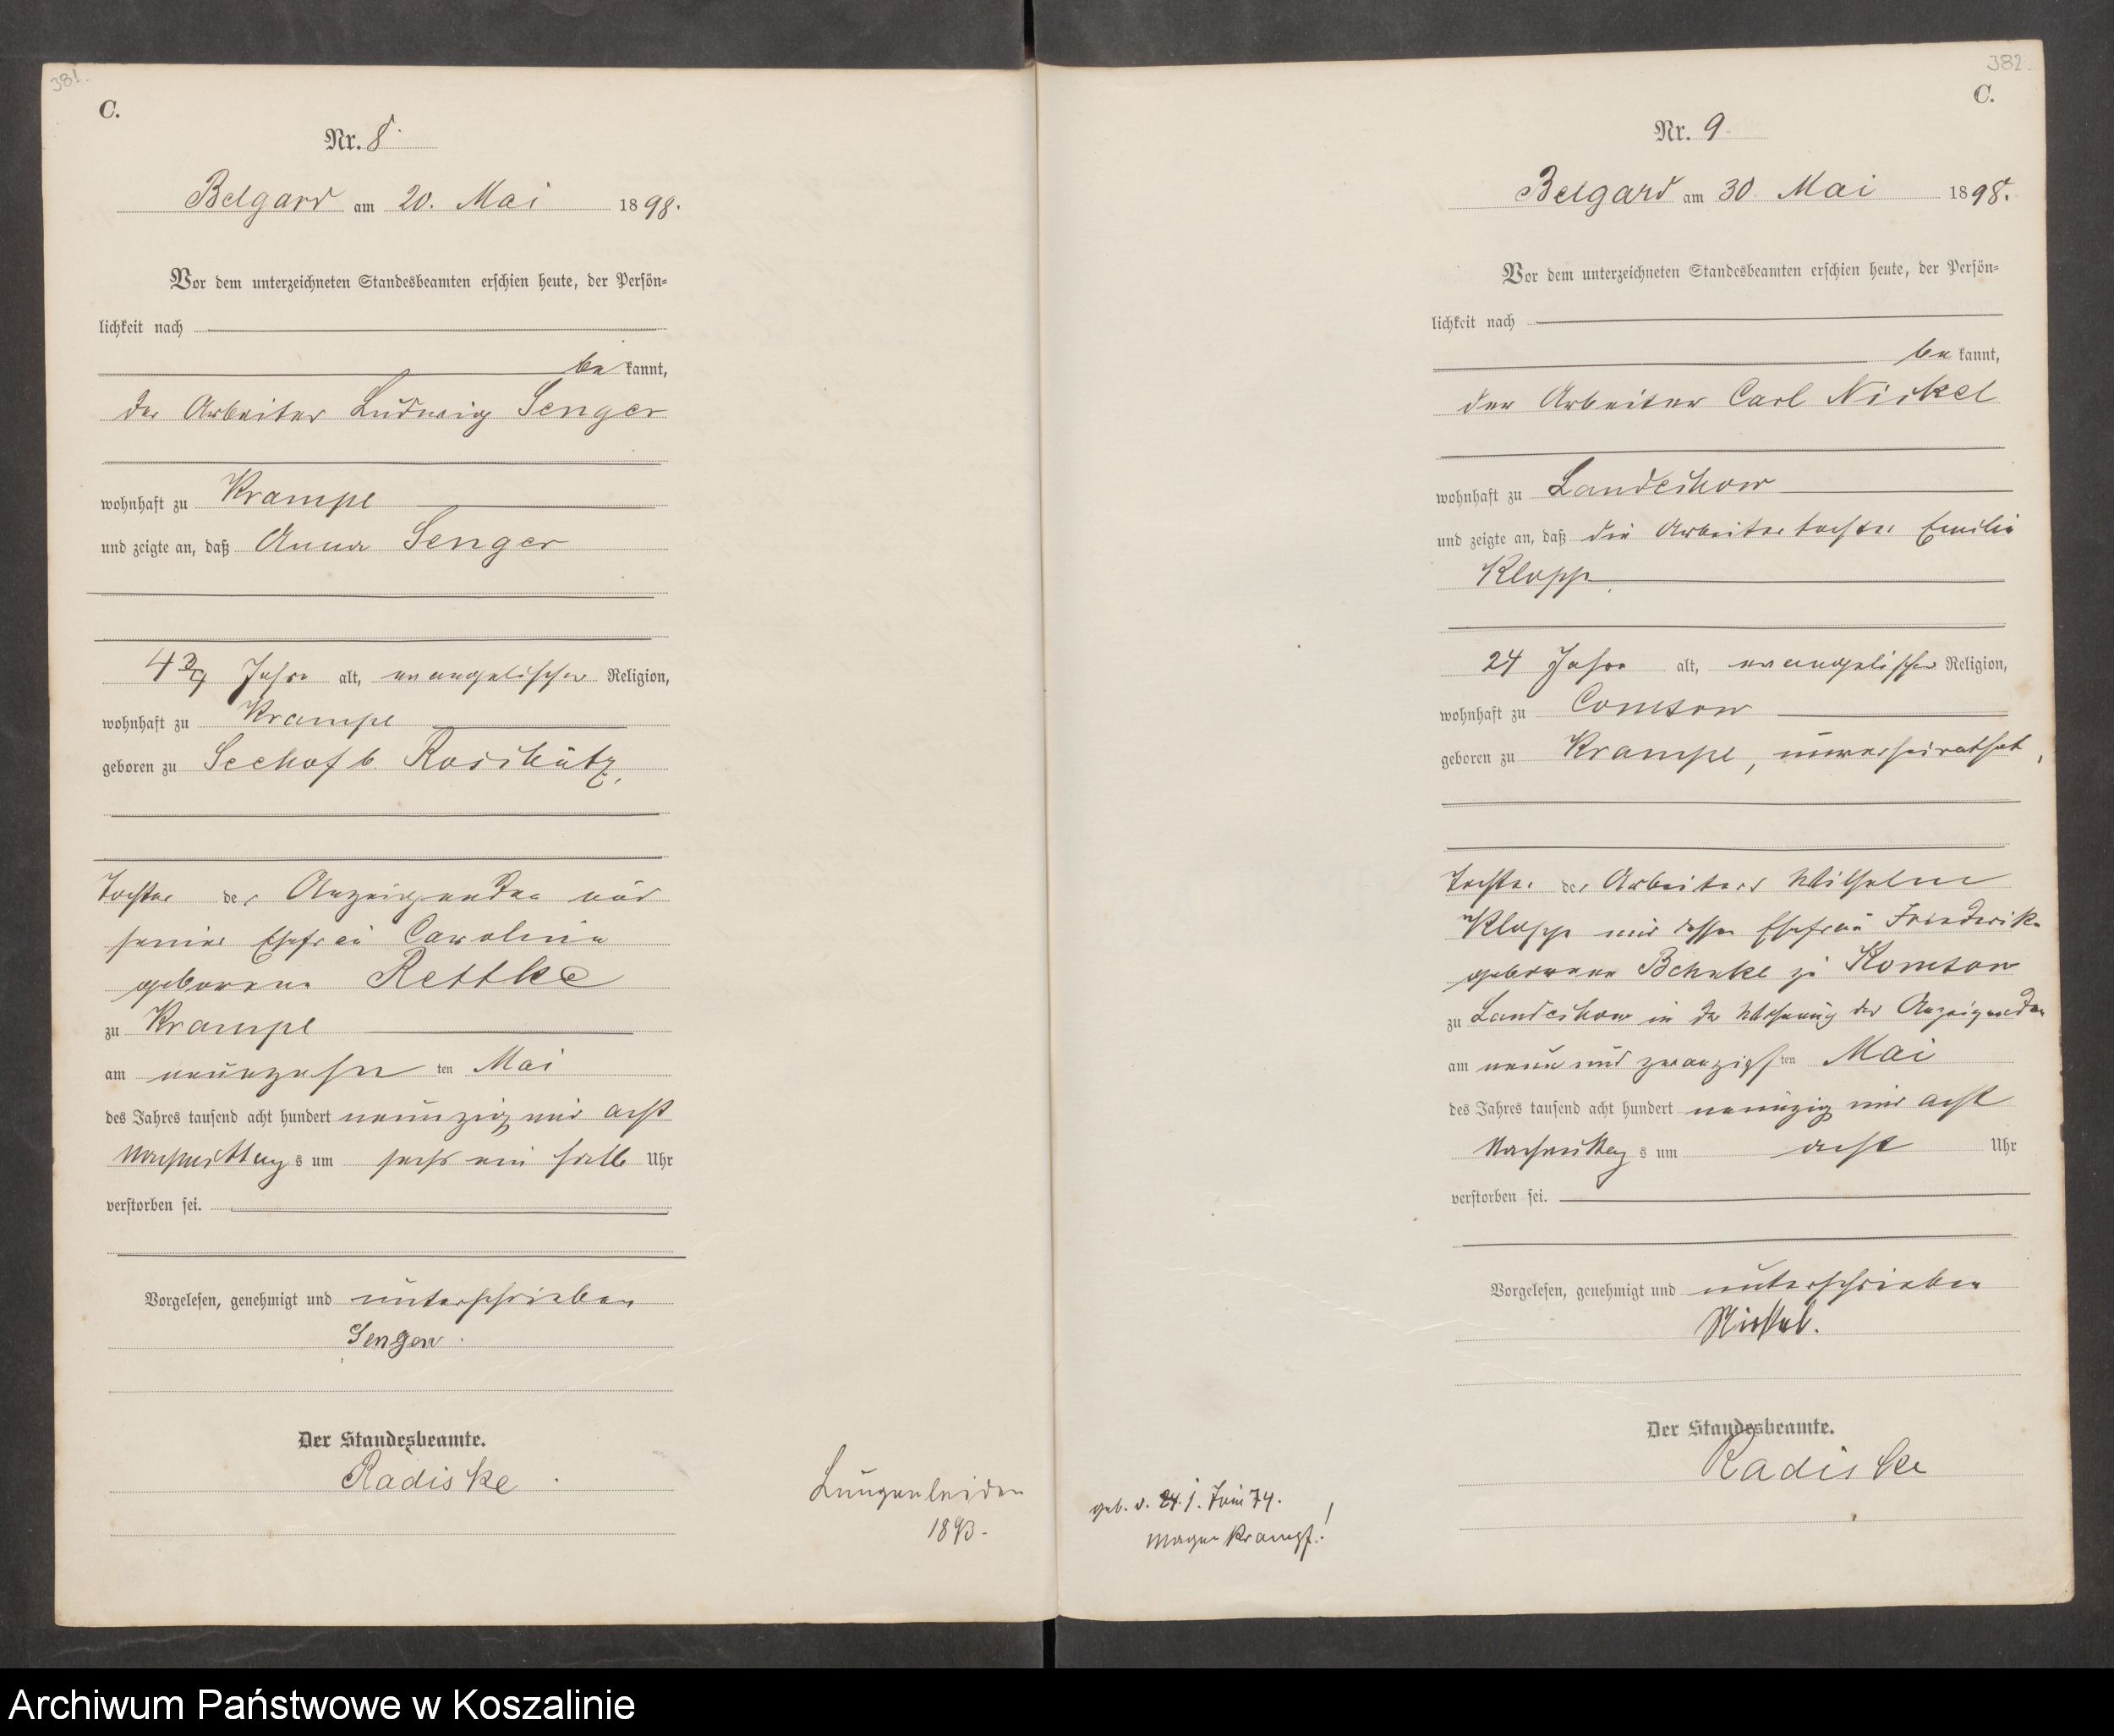 381.
C.
Nr. 8.
Belgard am 20. Mai 1898.
Vor dem unterzeichneten Standesbeamten erschien heute, der Persön-
lichkeit nach
be kannt,
der Arbeiter Ludwig Senger
wohnhaft zu Krampe
und zeigte an, daß Anna Senger
4 3/4 Jahre alt, evangelischer Religion,
wohnhaft zu Krampe
geboren zu Seehof b.
Tochter des Anzeigenden und
seiner Ehefrau Caroline
geborene Rettke
zu Krampe
am neunzehn ten Mai
des Jahres tausend acht hundert neunzig und acht
Nachmittag s um sechs ein halb Uhr
verstorben sei.
Vorgelesen, genehmigt und unterschrieben
Senger.
Der Standesbeamte.
Radiske.
Lungenleiden
1893.
382.
C.
Nr. 9.
Belgard am 30 Mai 1898.
Vor dem unterzeichneten Standesbeamten erschien heute, der Persön-
lichkeit nach
be kannt,
der Arbeiter Carl Nickel
wohnhaft zu Landechow
und zeigte an, daß die Arbeitertochter Emilie
Klopp
24 Jahre alt, evangelischer Religion,
wohnhaft zu Comsow
geboren zu Krampe, unverheirathet,
Tochter des Arbeiters Wilhelm
Klopp und dessen Ehefrau Friederike
geborene zu Komsow
zu Landechow in der Wohnung des Anzeigenden
am neun und zwanzigs ten Mai
des Jahres tausend acht hundert neunzig und acht
Nachmittag s um acht Uhr
verstorben sei.
Vorgelesen, genehmigt und unterschrieben
Nickel.
Der Standesbeamte.
Radiske
geb. d. 74.
Magenkrampf!
Archiwum Państwowe w Koszalinie